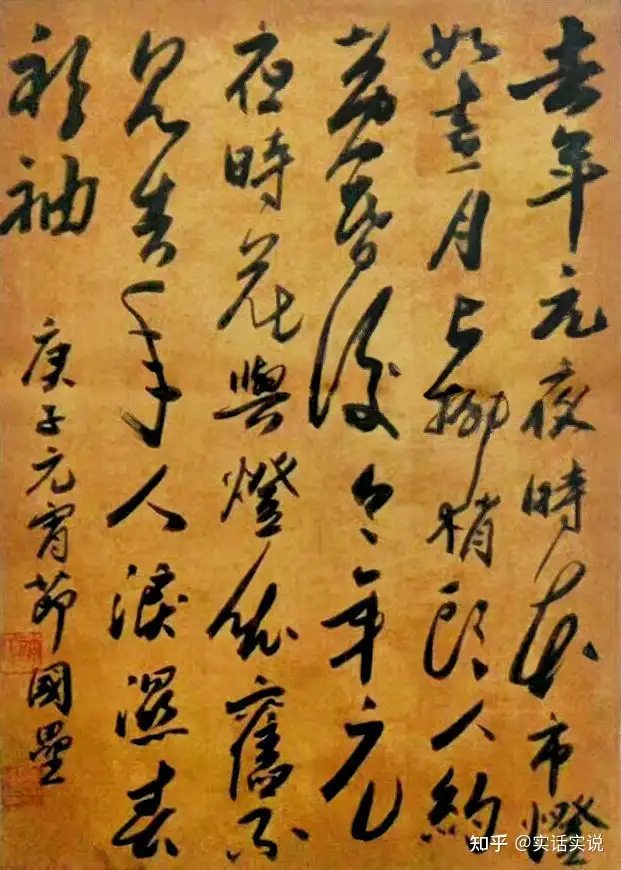 去年元夜時花市燈
如晝月上柳梢頭人約
黃昏後今年元
夜時花與燈依舊不
見去年人淚濕春
衫袖
庚子元宵節國壘
知乎 @实话实说